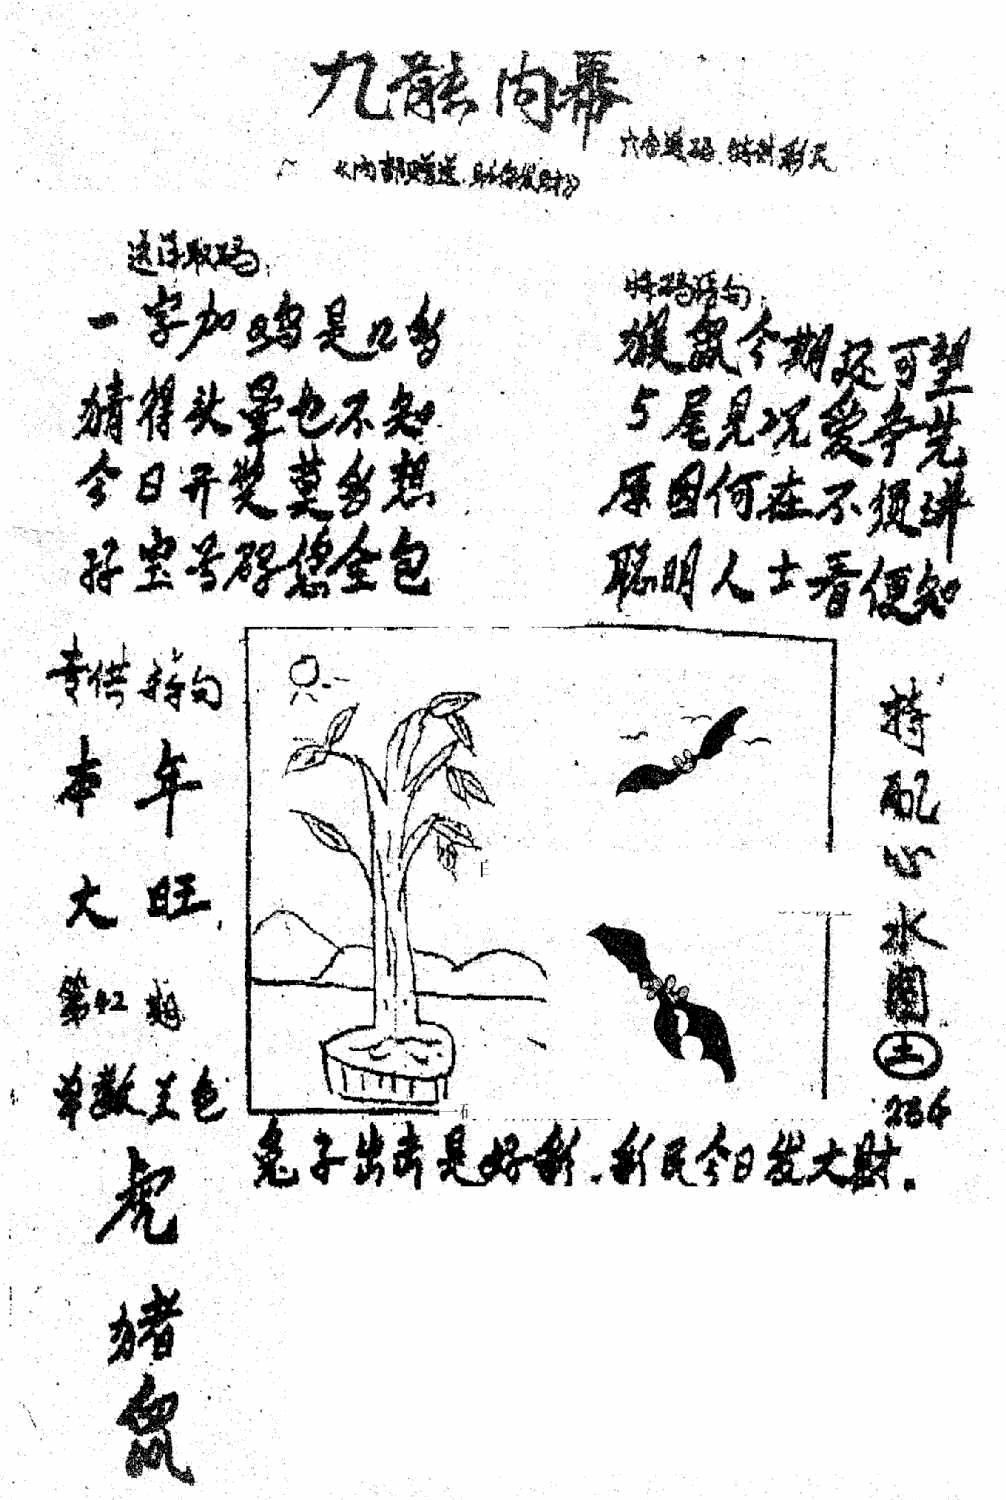 九龙内幕
六合送码.特对彩民
《内部赠送.助你发财》
送诗取码:
一字加鸡是几多
猜得头晕也不知
今日开奖莫多想
好宝号码您全包
特码语句:
猴鼠今期还可望
5尾见况爱争先
原因何在不须讲
聪明人士看便知
专供特句
本年
大旺
第42期
单数兰色
虎
猪
鼠
特配心水图
土
236
兔子出击是好彩.彩民今日发大财.